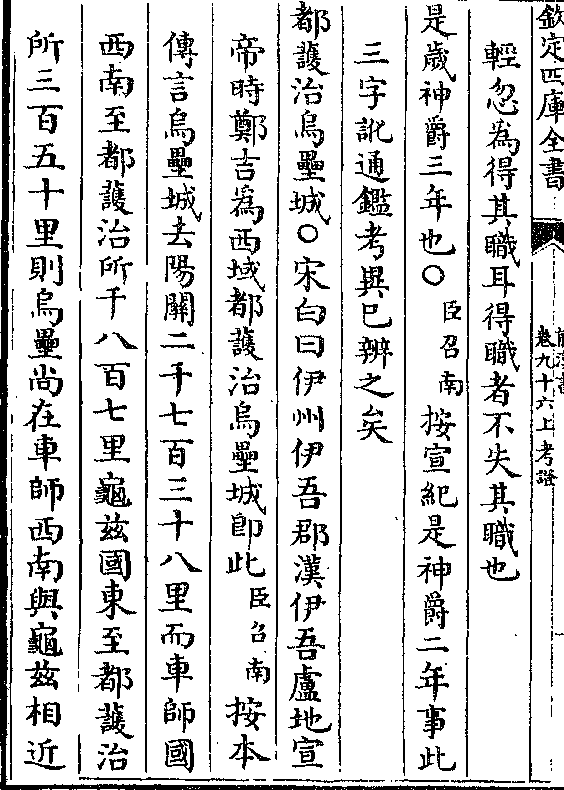 欽定四庫全書
前漢書
卷九十六上考證
輕忽為得其職耳得職者不失其職也
是歲神爵三年也〇臣召南按宣紀是神爵二年事此
三字訛通鑑考異已辨之矣
都護治烏壘城〇宋白曰伊州伊吾郡漢伊吾盧地宣
帝時鄭吉為西域都護治烏壘城即此臣召南按本
傳言烏壘城去陽關二千七百三十八里而車師國
西南至都護治所千八百七里龜兹國東至都護治
所三百五十里則烏壘尚在車師西南與龜兹相近